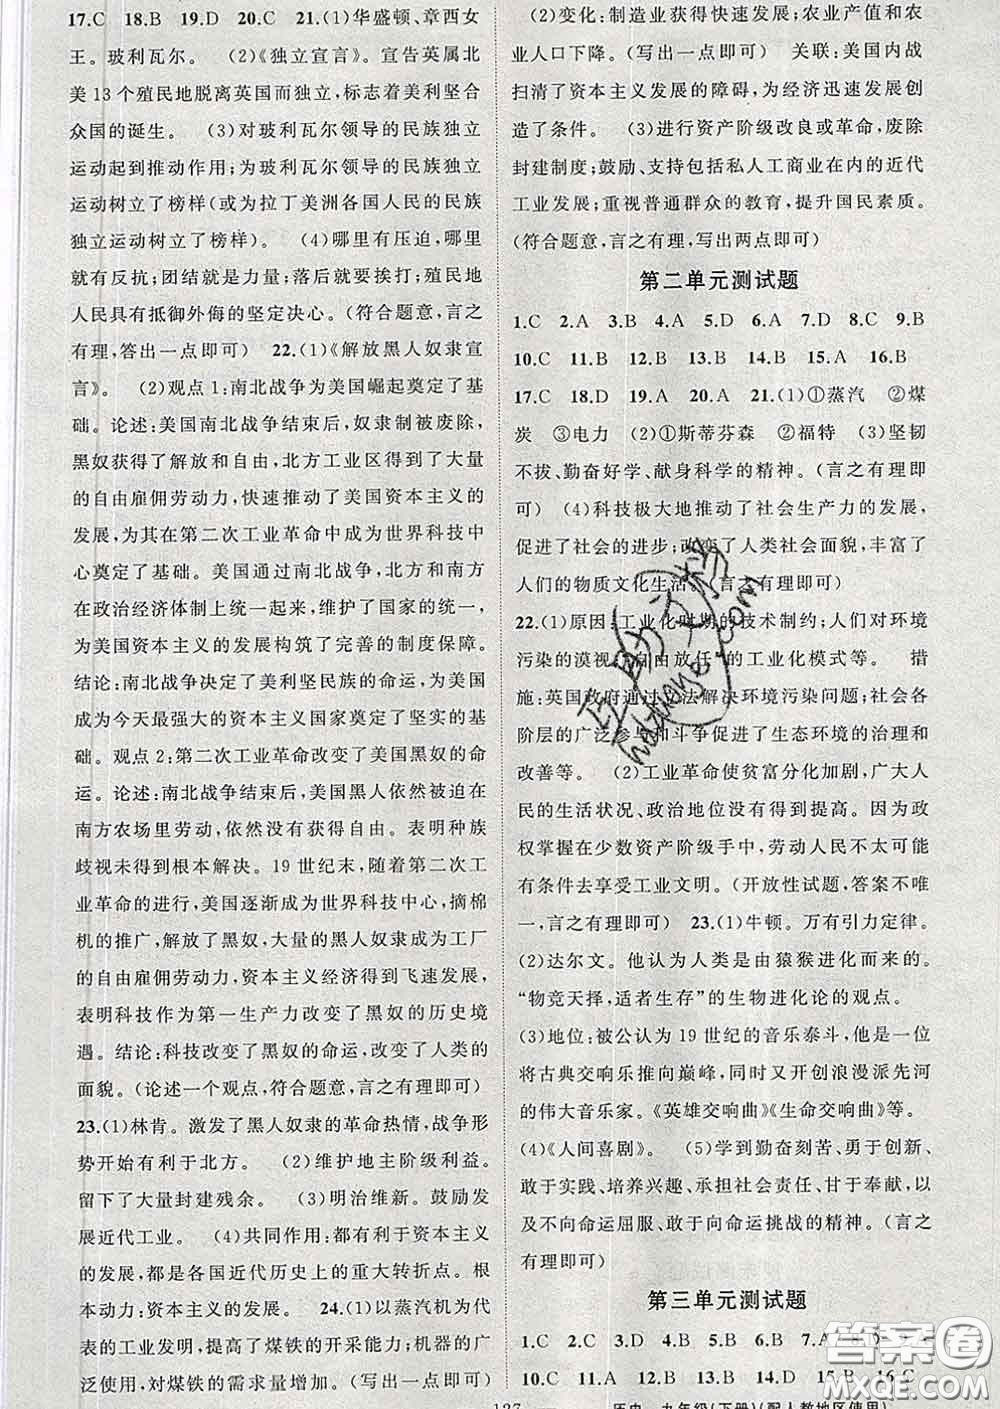 17.C 18.B 19.D 20.C 21.(1)华盛顿、章西女
王。玻利瓦尔。 (2)《独立宣言》。宣告英属北
美13个殖民地脱离英国而独立,标志着美利坚合
众国的诞生。 (3)对玻利瓦尔领导的民族独立
运动起到推动作用;为玻利瓦尔领导的民族独立
运动树立了榜样(或为拉丁美洲各国人民的民族
独立运动树立了榜样)。 (4)哪里有压迫,哪里
就有反抗;团结就是力量;落后就要挨打;殖民地
人民具有抵御外侮的坚定决心。(符合题意,言之
有理,答出一点即可) 22.(1)《解放黑人奴隶宣
言》。 (2)观点1:南北战争为美国崛起奠定了基
础。论述:美国南北战争结束后,奴隶制被废除,
黑奴获得了解放和自由,北方工业区得到了大量
的自由雇佣劳动力,快速推动了美国资本主义的
发展,为其在第二次工业革命中成为世界科技中
心奠定了基础。美国通过南北战争,北方和南方
在政治经济体制上统一起来,维护了国家的统一,
为美国资本主义的发展构筑了完善的制度保障。
结论:南北战争决定了美利坚民族的命运,为美国
成为今天最强大的资本主义国家奠定了坚实的基
础。观点2:第二次工业革命改变了美国黑奴的命
运。论述:南北战争结束后,美国黑人依然被迫在
南方农场里劳动,依然没有获得自由。表明种族
歧视未得到根本解决。19世纪末,随着第二次工
业革命的进行,美国逐渐成为世界科技中心,摘棉
机的推广,解放了黑奴,大量的黑人奴隶成为工厂
的自由雇佣劳动力,资本主义经济得到飞速发展,
表明科技作为第一生产力改变了黑奴的历史境
遇。结论:科技改变了黑奴的命运,改变了人类的
面貌。(论述一个观点,符合题意,言之有理即可)
23.(1)林肯。激发了黑人奴隶的革命热情,战争形
势开始有利于北方。 (2)维护地主阶级利益。
留下了大量封建残余。 (3)明治维新。鼓励发
展近代工业。 (4)共同作用:都有利于资本主义
的发展,都是各国近代历史上的重大转折点。根
本动力:资本主义的发展。 24.(1)以蒸汽机为代
表的工业发明,提高了煤铁的开采能力;机器的广
泛使用,对煤铁的需求量增加。(写出一点即可)
(2)变化:制造业获得快速发展;农业产值和农
业人口下降。(写出一点即可) 关联:美国内战
扫清了资本主义发展的障碍,为经济迅速发展创
造了条件。 (3)进行资产阶级改良或革命,废除
封建制度;鼓励、支持包括私人工商业在内的近代
工业发展;重视普通群众的教育,提升国民素质。
(符合题意,言之有理,写出两点即可)
第二单元测试题
1.C 2.A 3.B 4.A 5.D 6.A 7.D 8.C 9.B
10.C 11.B 12.B 13.B 14.B 15.A 16.B
17.C 18.D 19.A 20.A 21.(1)①蒸汽 ②煤
炭 ③电力 (2)①斯蒂芬森 ②福特 (3)坚韧
不拔、勤奋好学、献身科学的精神。(言之有理即
可) (4)科技极大地推动了社会生产力的发展,
促进了社会的进步;改变了人类社会面貌,丰富了
人们的物质文化生活。(言之有理即可)
22.(1)原因:工业化时期的技术制约;人们对环境
污染的漠视;自由放任的工业化模式等。 措
施:英国政府通过立法解决环境污染问题;社会各
阶层的广泛参与和斗争促进了生态环境的治理和
改善等。 (2)工业革命使贫富分化加剧,广大人
民的生活状况、政治地位没有得到提高。因为政
权掌握在少数资产阶级手中,劳动人民不太可能
有条件去享受工业文明。(开放性试题,答案不唯
一,言之有理即可) 23.(1)牛顿。万有引力定律。
(2)达尔文。他认为人类是由猿猴进化而来的。
“物竞天择,适者生存”的生物进化论的观点。
(3)地位:被公认为19世纪的音乐泰斗,他是一位
将古典交响乐推向巅峰,同时又开创浪漫派先河
的伟大音乐家。《英雄交响曲》《生命交响曲》等。
(4)《人间喜剧》。 (5)学到勤奋刻苦、勇于创新、
敢于实践、培养兴趣、承担社会责任、甘于奉献,以
及不向命运屈服、敢于向命运挑战的精神。(言之
有理即可)
第三单元测试题
1.C 2.C 3.D 4.B 5.B 6.B 7.A
10.C 11.A 12.C 13.B 14.D 15.B 16.C
127 历史 九年级(下册)(配人教地区使用)
互助文档
hdzuoye.com
答案圈
MXQE.COM